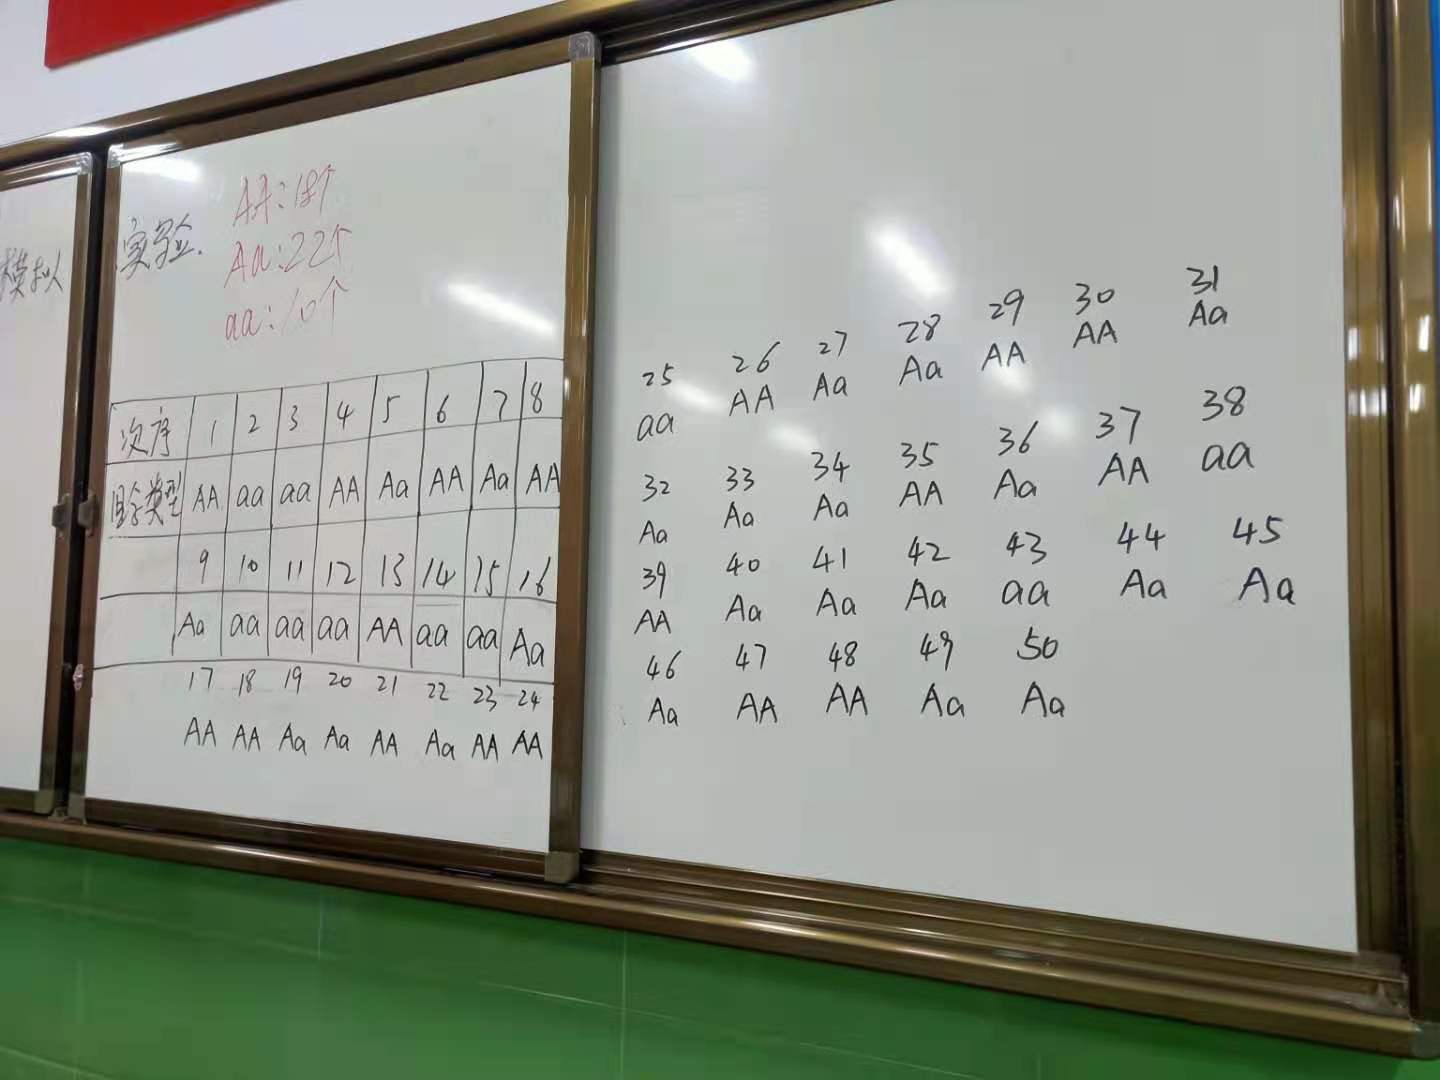 模拟
实验.
AA:18个
Aa:22个
aa:10个
次序 1 2 3 4 5 6 7 8
组合类型 AA aa aa AA Aa AA Aa AA
9 10 11 12 13 14 15 16
Aa aa aa aa AA aa aa Aa
17 18 19 20 21 22 23 24
AA AA Aa Aa AA Aa AA AA
25 26 27 28 29 30 31
aa AA Aa Aa AA AA Aa
32 33 34 35 36 37 38
Aa Aa Aa AA Aa AA aa
39 40 41 42 43 44 45
AA Aa Aa Aa aa Aa Aa
46 47 48 49 50
Aa AA AA Aa Aa